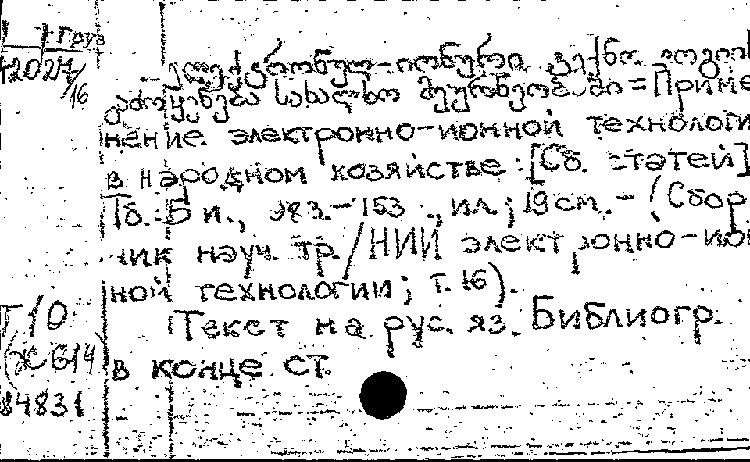 1 Груз
12027/16
ელექტრონულ-იონური ტექნოლოგიის
გამოყენება სახალხო მეურნეობაში = Приме
нение электронно-ионной технологи
в народном хозяйстве: [Сб. статей]
Тб.: Б и., 983.- 153 ., ил.; 19 см. - (Сбор
ник науч. тр./НИИ электронно-ион
ной технологии; т. 16).
Текст на рус. яз. Библиогр.
в конце ст.
Т10
(Ж614)
84831